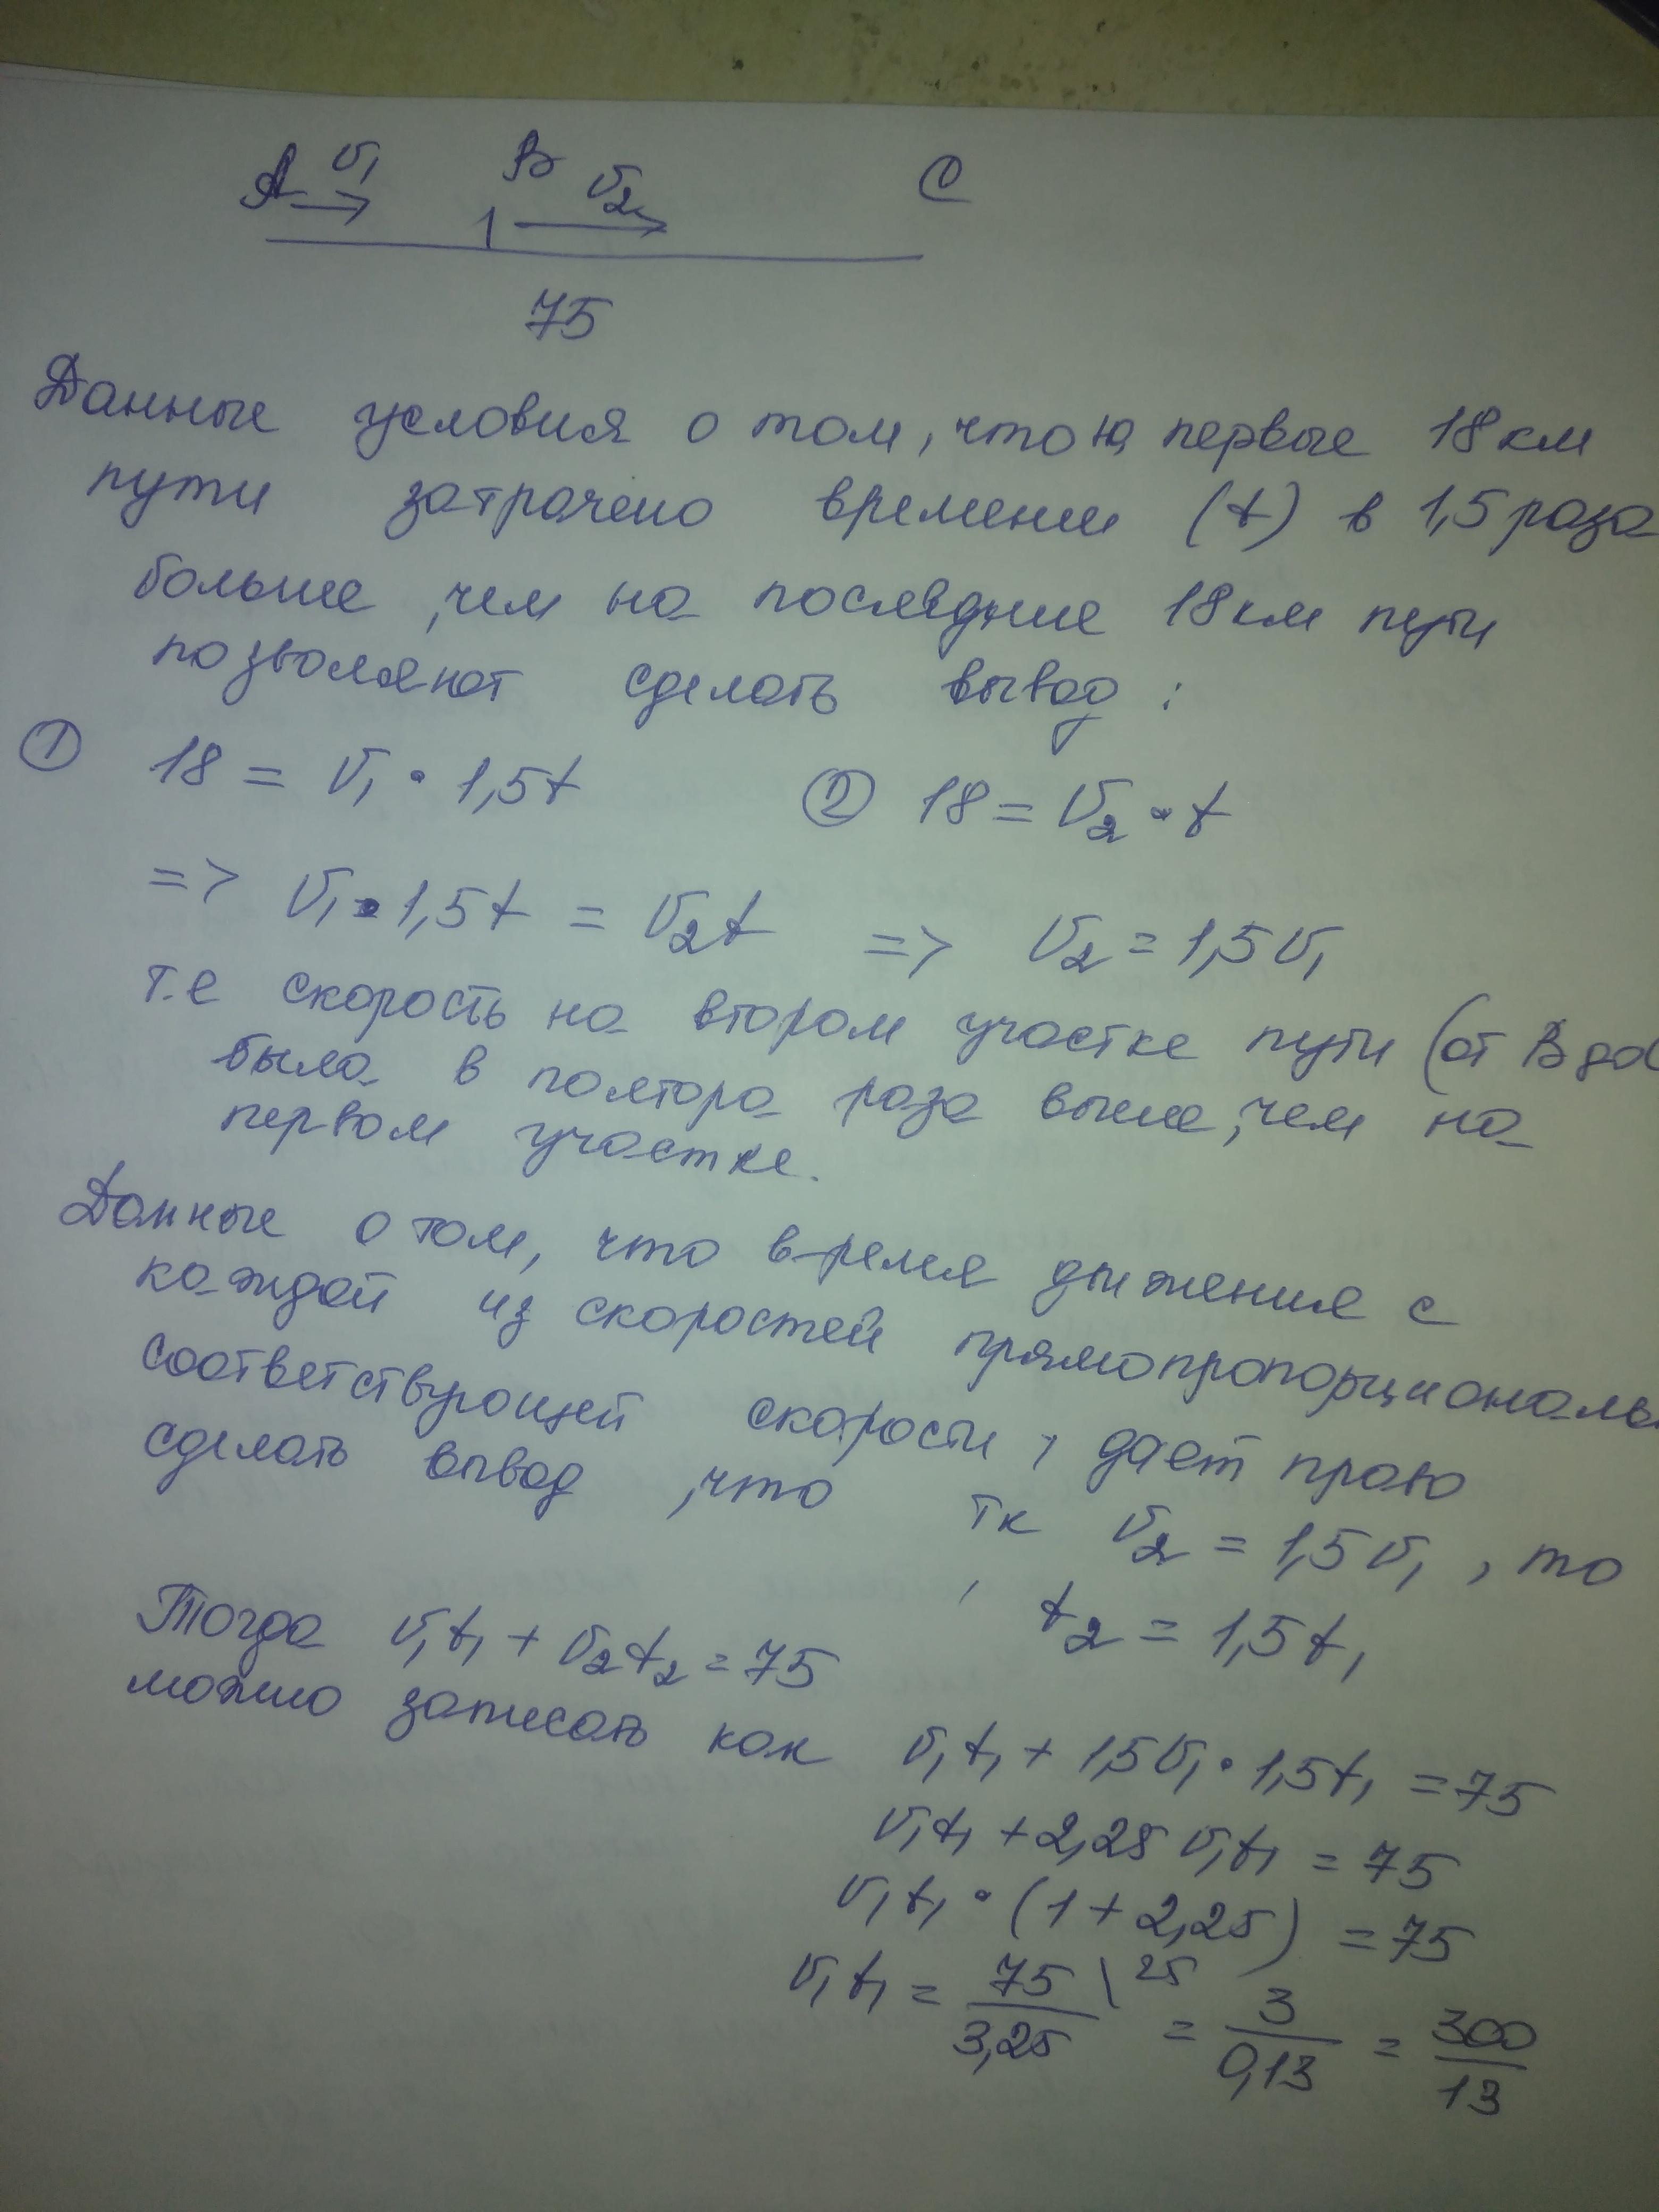 A v₁ B v₂ C
75
Данные условия о том, что на первые 18 км
пути затрачено времени (t) в 1,5 раза
больше, чем на последние 18 км пути
позволяют сделать вывод:
① 18 = v₁ · 1,5t ② 18 = v₂ · t
=> v₁ · 1,5t = v₂t => v₂ = 1,5v₁
т.е скорость на втором участке пути (от В до
была в полтора раза выше, чем на
первом участке.
Данные о том, что время движения с
каждой из скоростей прямопропорциональ
соответствующей скорости, дает право
сделать вывод, что тк v₂ = 1,5v₁, то
t₂ = 1,5t₁
Тогда v₁t₁ + v₂t₂ = 75
можно записать как v₁t₁ + 1,5v₁ · 1,5t₁ = 75
v₁t₁ + 2,25 v₁t₁ = 75
v₁t₁ · (1 + 2,25) = 75
v₁t₁ = 75/3,25 \ 25 = 3/0,13 = 300/13